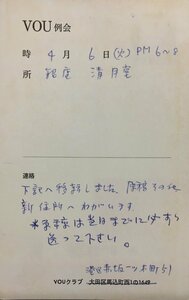 VOU例会
時 4月 6日(火)PM 6〜8
所 銀座 清月堂
連絡
下記へ移転しました。原稿その他
新住所へねがいます
*原稿は当日までに必ず
送って下さい。
港区赤坂一ツ木町51
VOUクラブ 大田区馬込町西1の1649